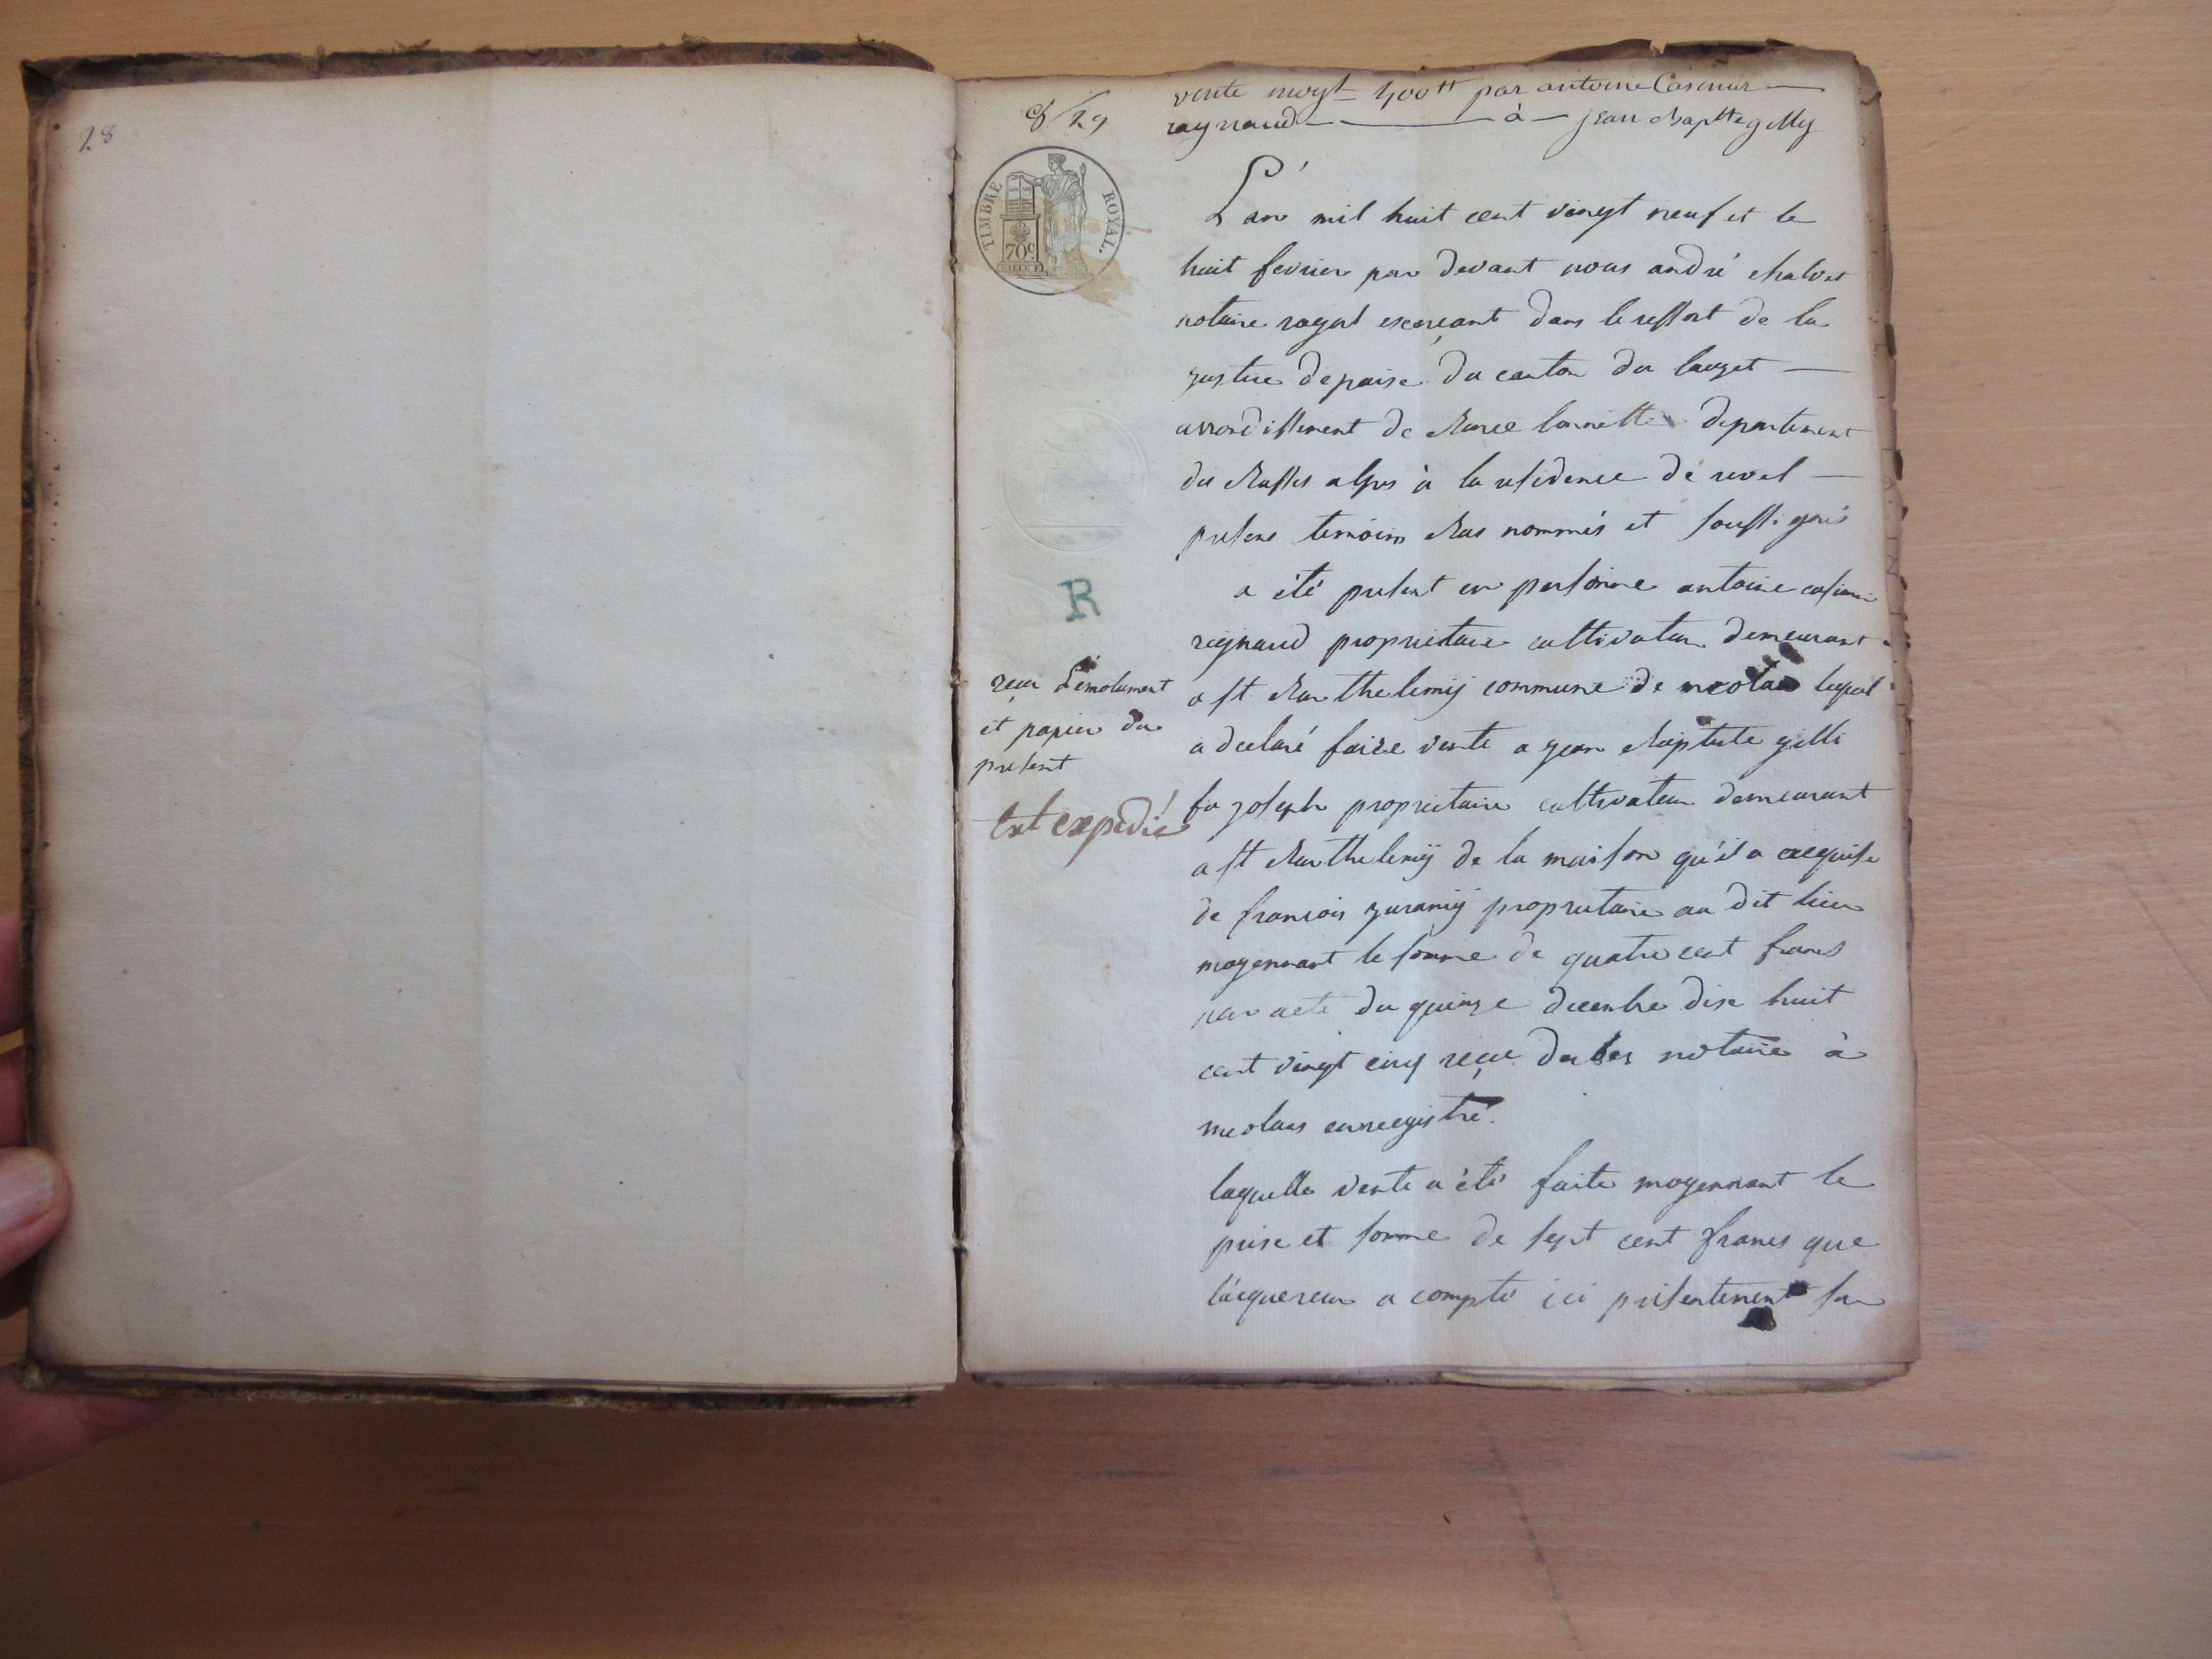 28
29
vente moyt 400tt par antoine Casimir
raynaud à jean Baptte gilly
TIMBRE ROYAL.
70c
L'an mil huit cent vingt neuf et le
huit fevrier par devant nous andré chalvet
notaire royal exerçant dans le ressort de la
justice de paix du canton du lauzet
arrondissement de Barcelonnette departement
des Basses alpes à la residence de revel
presens temoins Bas nommés et soussignés
a été present en personne antoine casimir
reynaud proprietaire cultivateur demeurant
a st Barthelemÿ commune de meolans lequel
a declaré faire vente a jean Baptiste gilli
fu joseph proprietaire cultivateur demeurant
a st Barthelemÿ de la maison qu'il a acquise
de francois juramÿ proprietaire au dit lieu
moyennant la somme de quatre cent francs
par acte du quinze decembre dix huit
cent vingt cinq reçu notaire à
meolans enregistré.
laquelle vente a été faite moyennant le
prix et somme de sept cent francs que
l'acquereur a compté ici présentement sur
R
reçu L'émolument
et papier du
present
Ext expedié